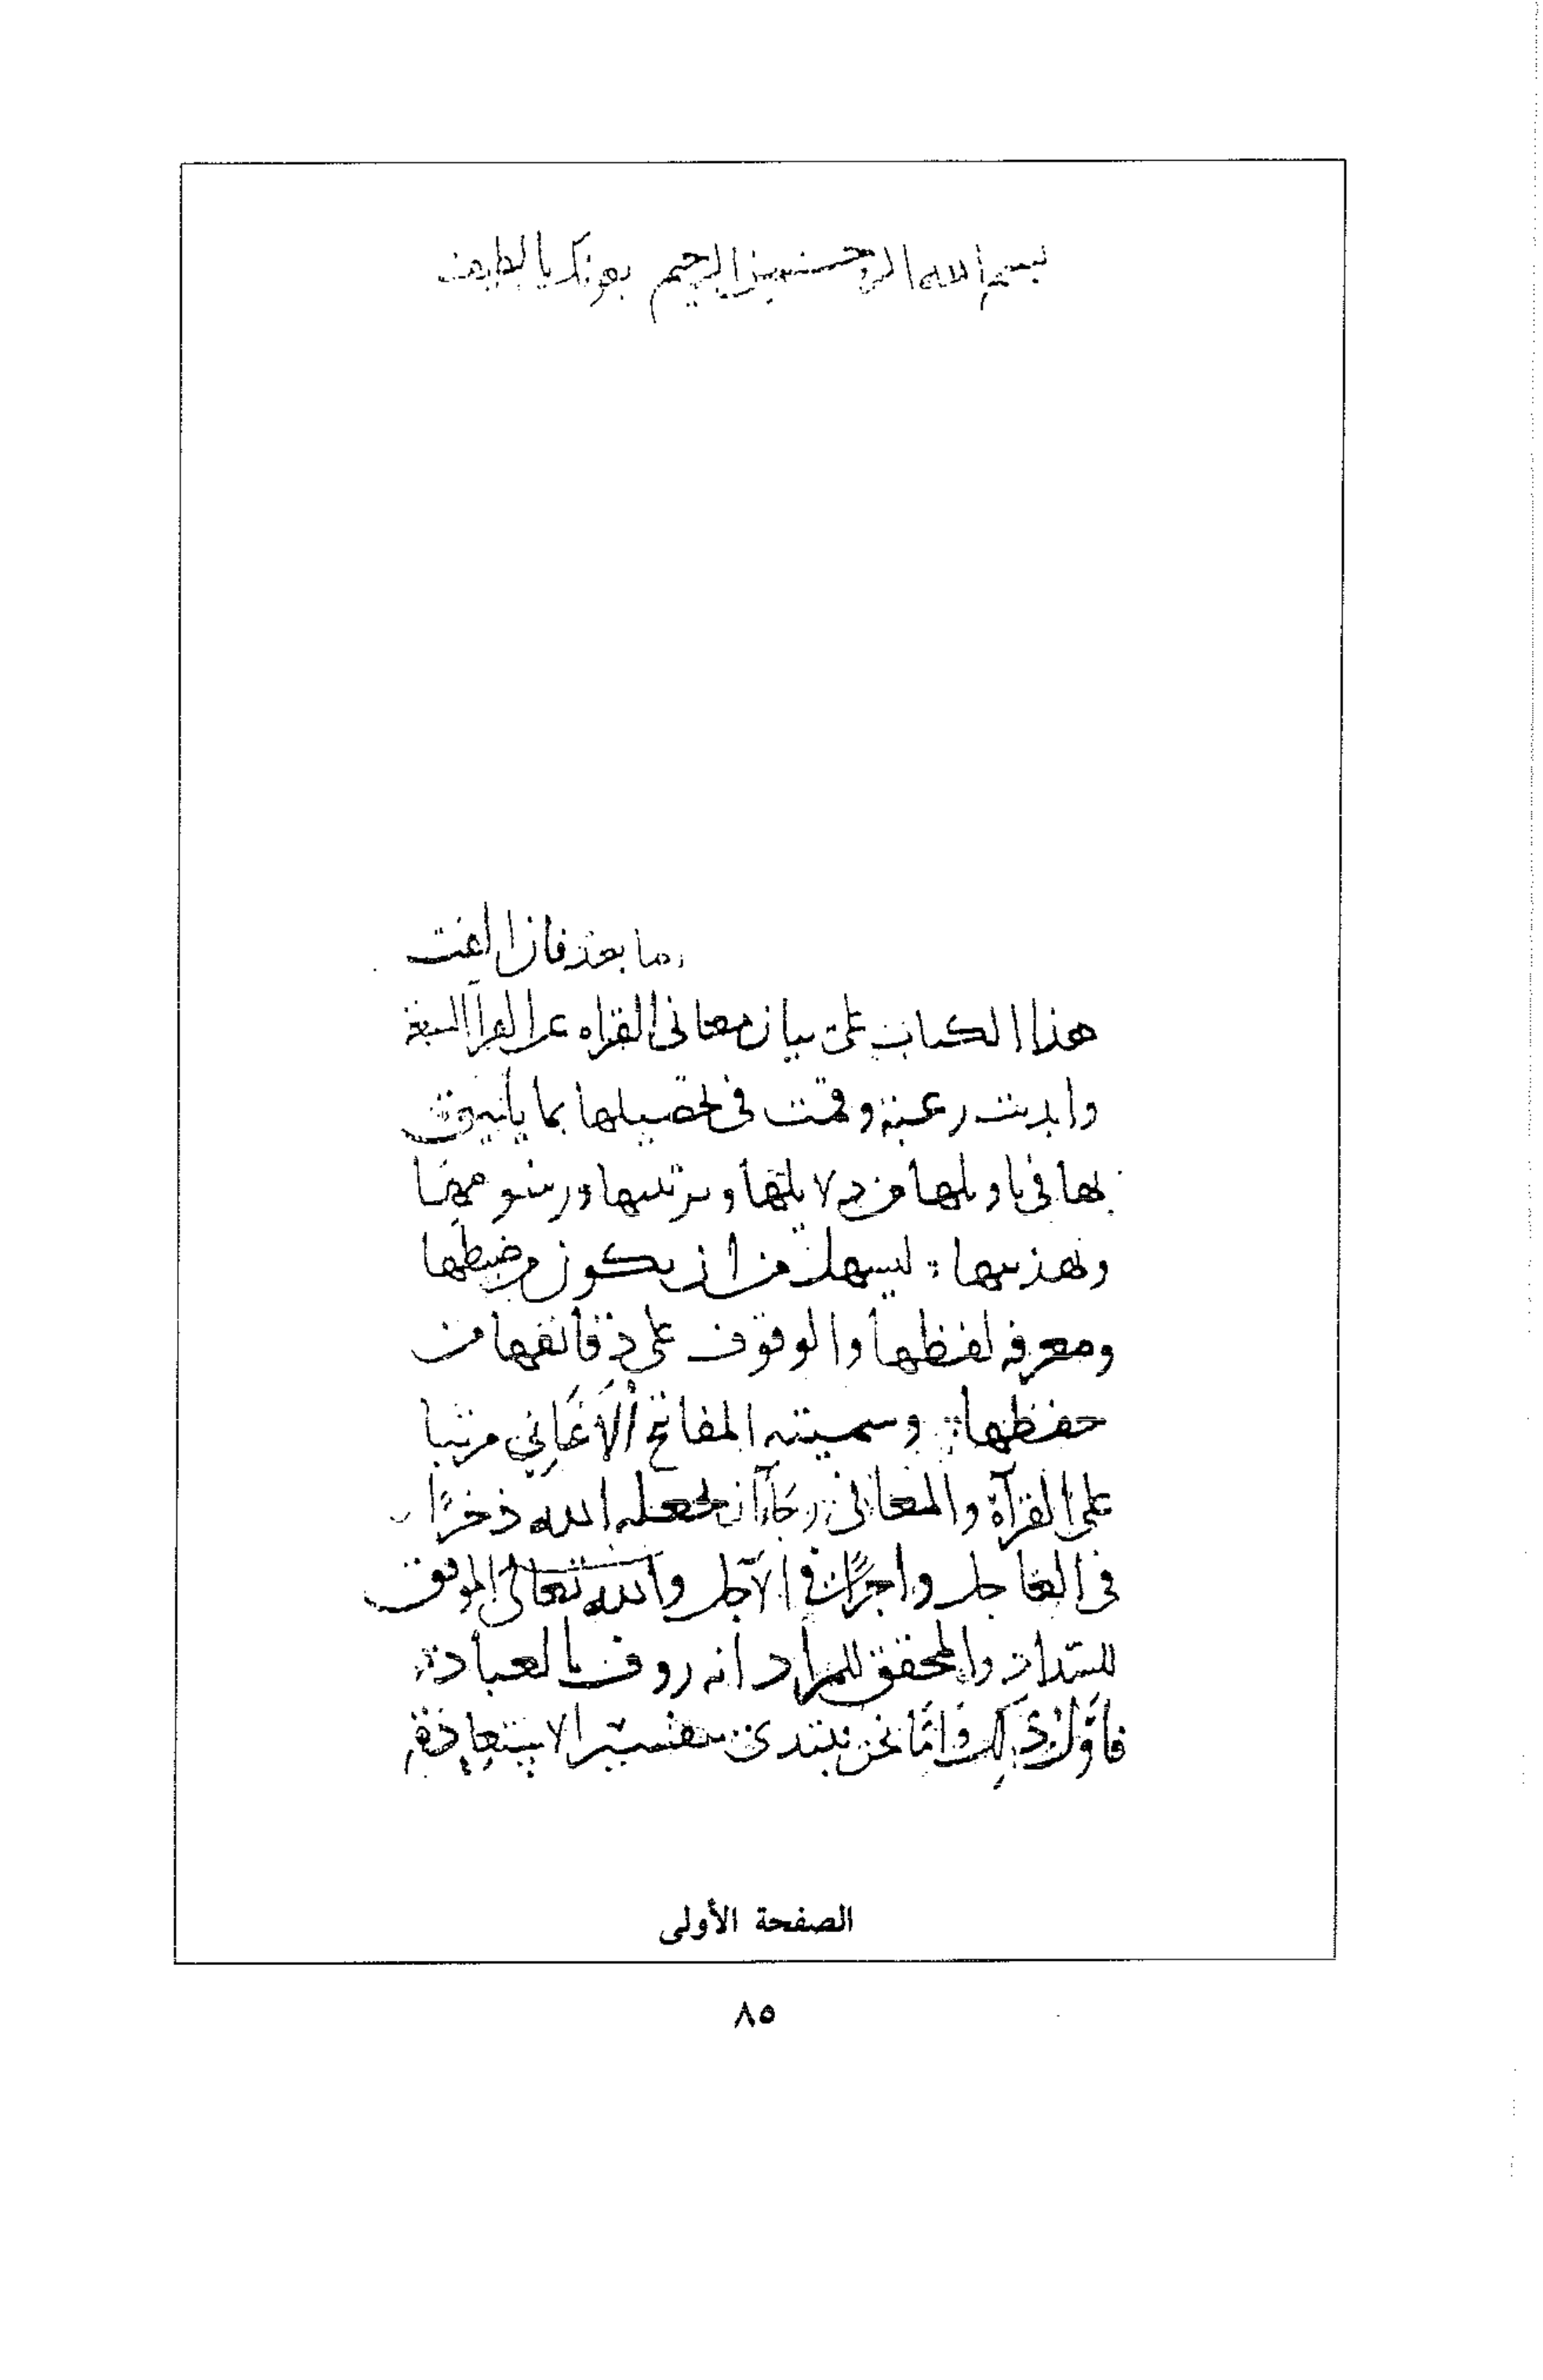 بسم الله الرحمن الرحيم بعونك يا لطيف
اما بعد فان الفت
هذا الكتاب على بيان معانى القراه عن القرا السبعة
وابديت رغبته وقمت فى تحصيلها بما يليق
بها فى تاويلها من دلايلها وترتيبها ورسومها
وتهذيبها ليسهل من ان يكون ضبطها
ومعرفه لفظها والوقوف على دقائقها من
حفظها وسميته المفاتح الأغاني مرتبا
على القرآة والمعانى رجاء ان يجعله الله ذخرًا
فى العاجل واجرًا فى الآجل والله تعالى الموفق
للسداد والمحقق للمراد انه روف بالعباد
فأوّل ذَلِك وَامَّا نحن نبتدى بتفسير الاستعاذة
الصفحة الأولى
٨٥